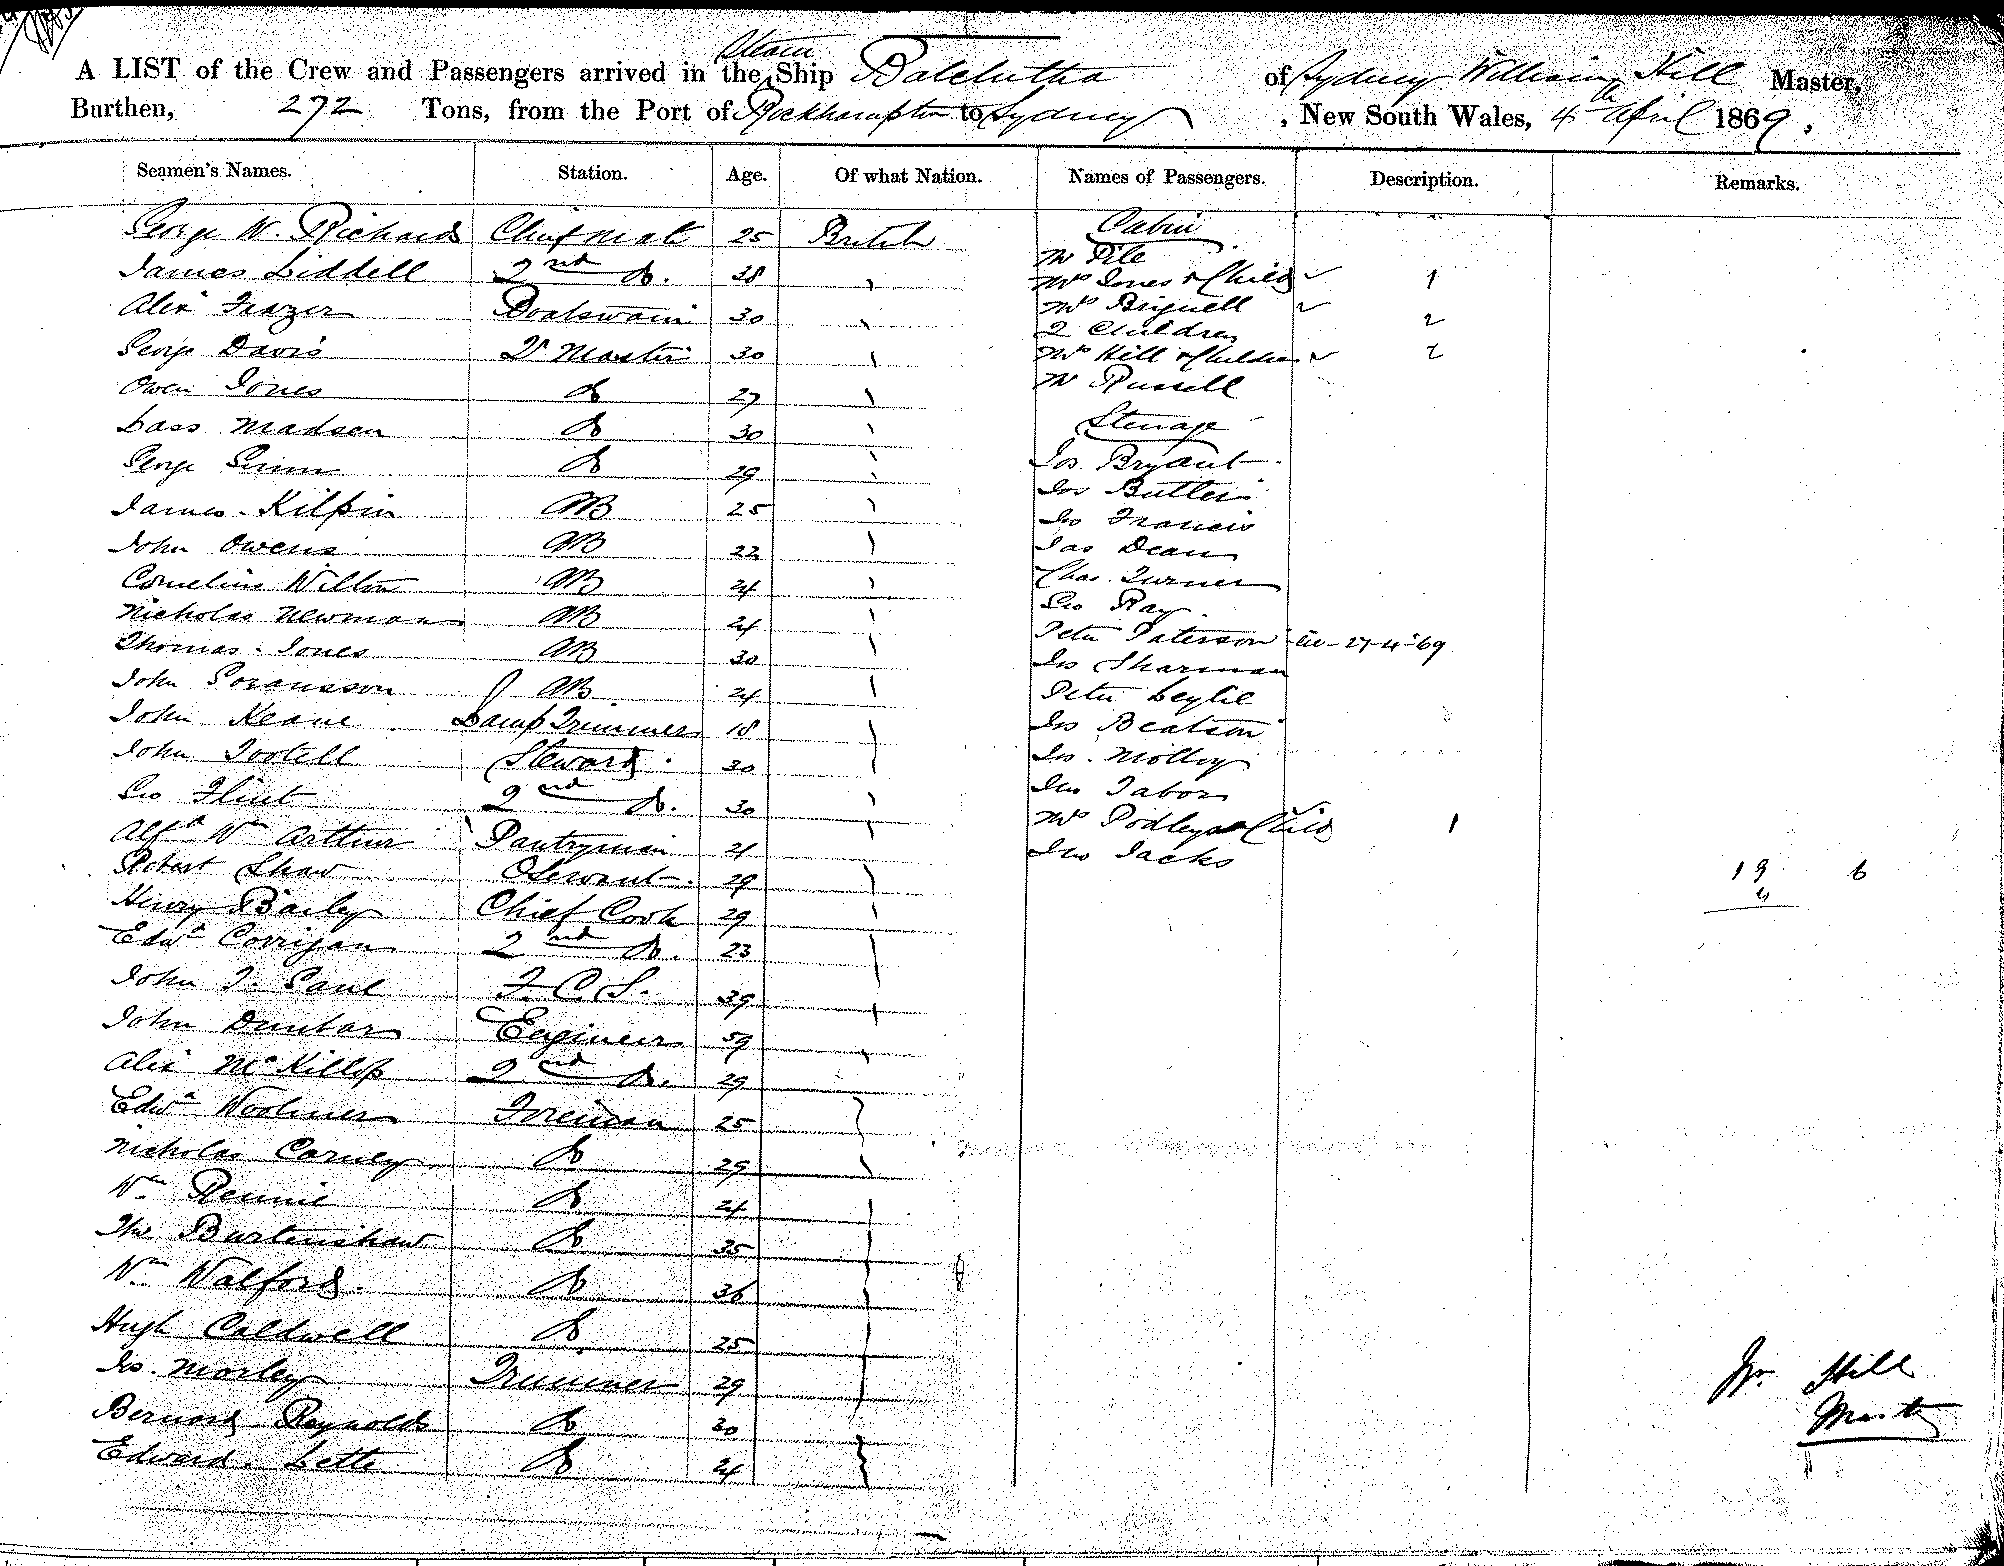 Steam
A LIST of the Crew and Passengers arrived in the Ship Balclutha of Sydney William Hill Master,
Burthen, 272 Tons, from the Port of Rockhampton to Sydney, New South Wales, 4th April 1869.
Seamen's Names. Station. Age. Of what Nation. Names of Passengers. Description. Remarks.
George W. Richards Chief Mate 25 British
James Liddell 2nd Do. 28
Alex Frazer Boatswain 30
George Davis Qr Master 30
Owen Jones Do 27
Lass Madsen Do 30
George Do 29
James Kilpin AB 25
John Owens AB 22
Cornelius Wilton AB 24
Nicholas Newman AB 24
Thomas Jones AB 30
John Soransson AB 24
John Keane Lamp Trimmer 18
John Tootell Steward 30
Geo Flint 2nd Do. 30
Alfd Wm Arthur Pantryman 21
Robert Shaw Servant 29
Henry Bailey Chief Cook 29
Edwd Corrigan 2nd Do. 23
John T. Paul F. C. S. 39
John Dunbar Engineer 59
Alex McKillop 2nd Do. 29
Edwd Woolmer Fireman 25
Nicholas Carney Do 29
Wm Rennie Do 24
Ths Burtenshaw Do 35
Wm Walford Do 36
Hugh Caldwell Do 25
Jas. Morley Trimmer 29
Bernard Reynolds Do 30
Edward Lette Do 24
Cabin
Mr Pile
Mrs Jones & Child 1
Mrs Brignell
2 Children 2
Mrs Hill & Children 2
Mr Russell
Steerage
Jos. Bryant
Jos Butler
Jno Francis
Jas Dean
Chas. Turner
Geo Ray
Peter Paterson 27-4-69
Jno Sharman
Peter Leylie
Jno Beatson
Jno. Molloy
Jno Tabor
Mrs Podley & Child 1
Jno Jacks
19 6
4
Wm Hill
Master